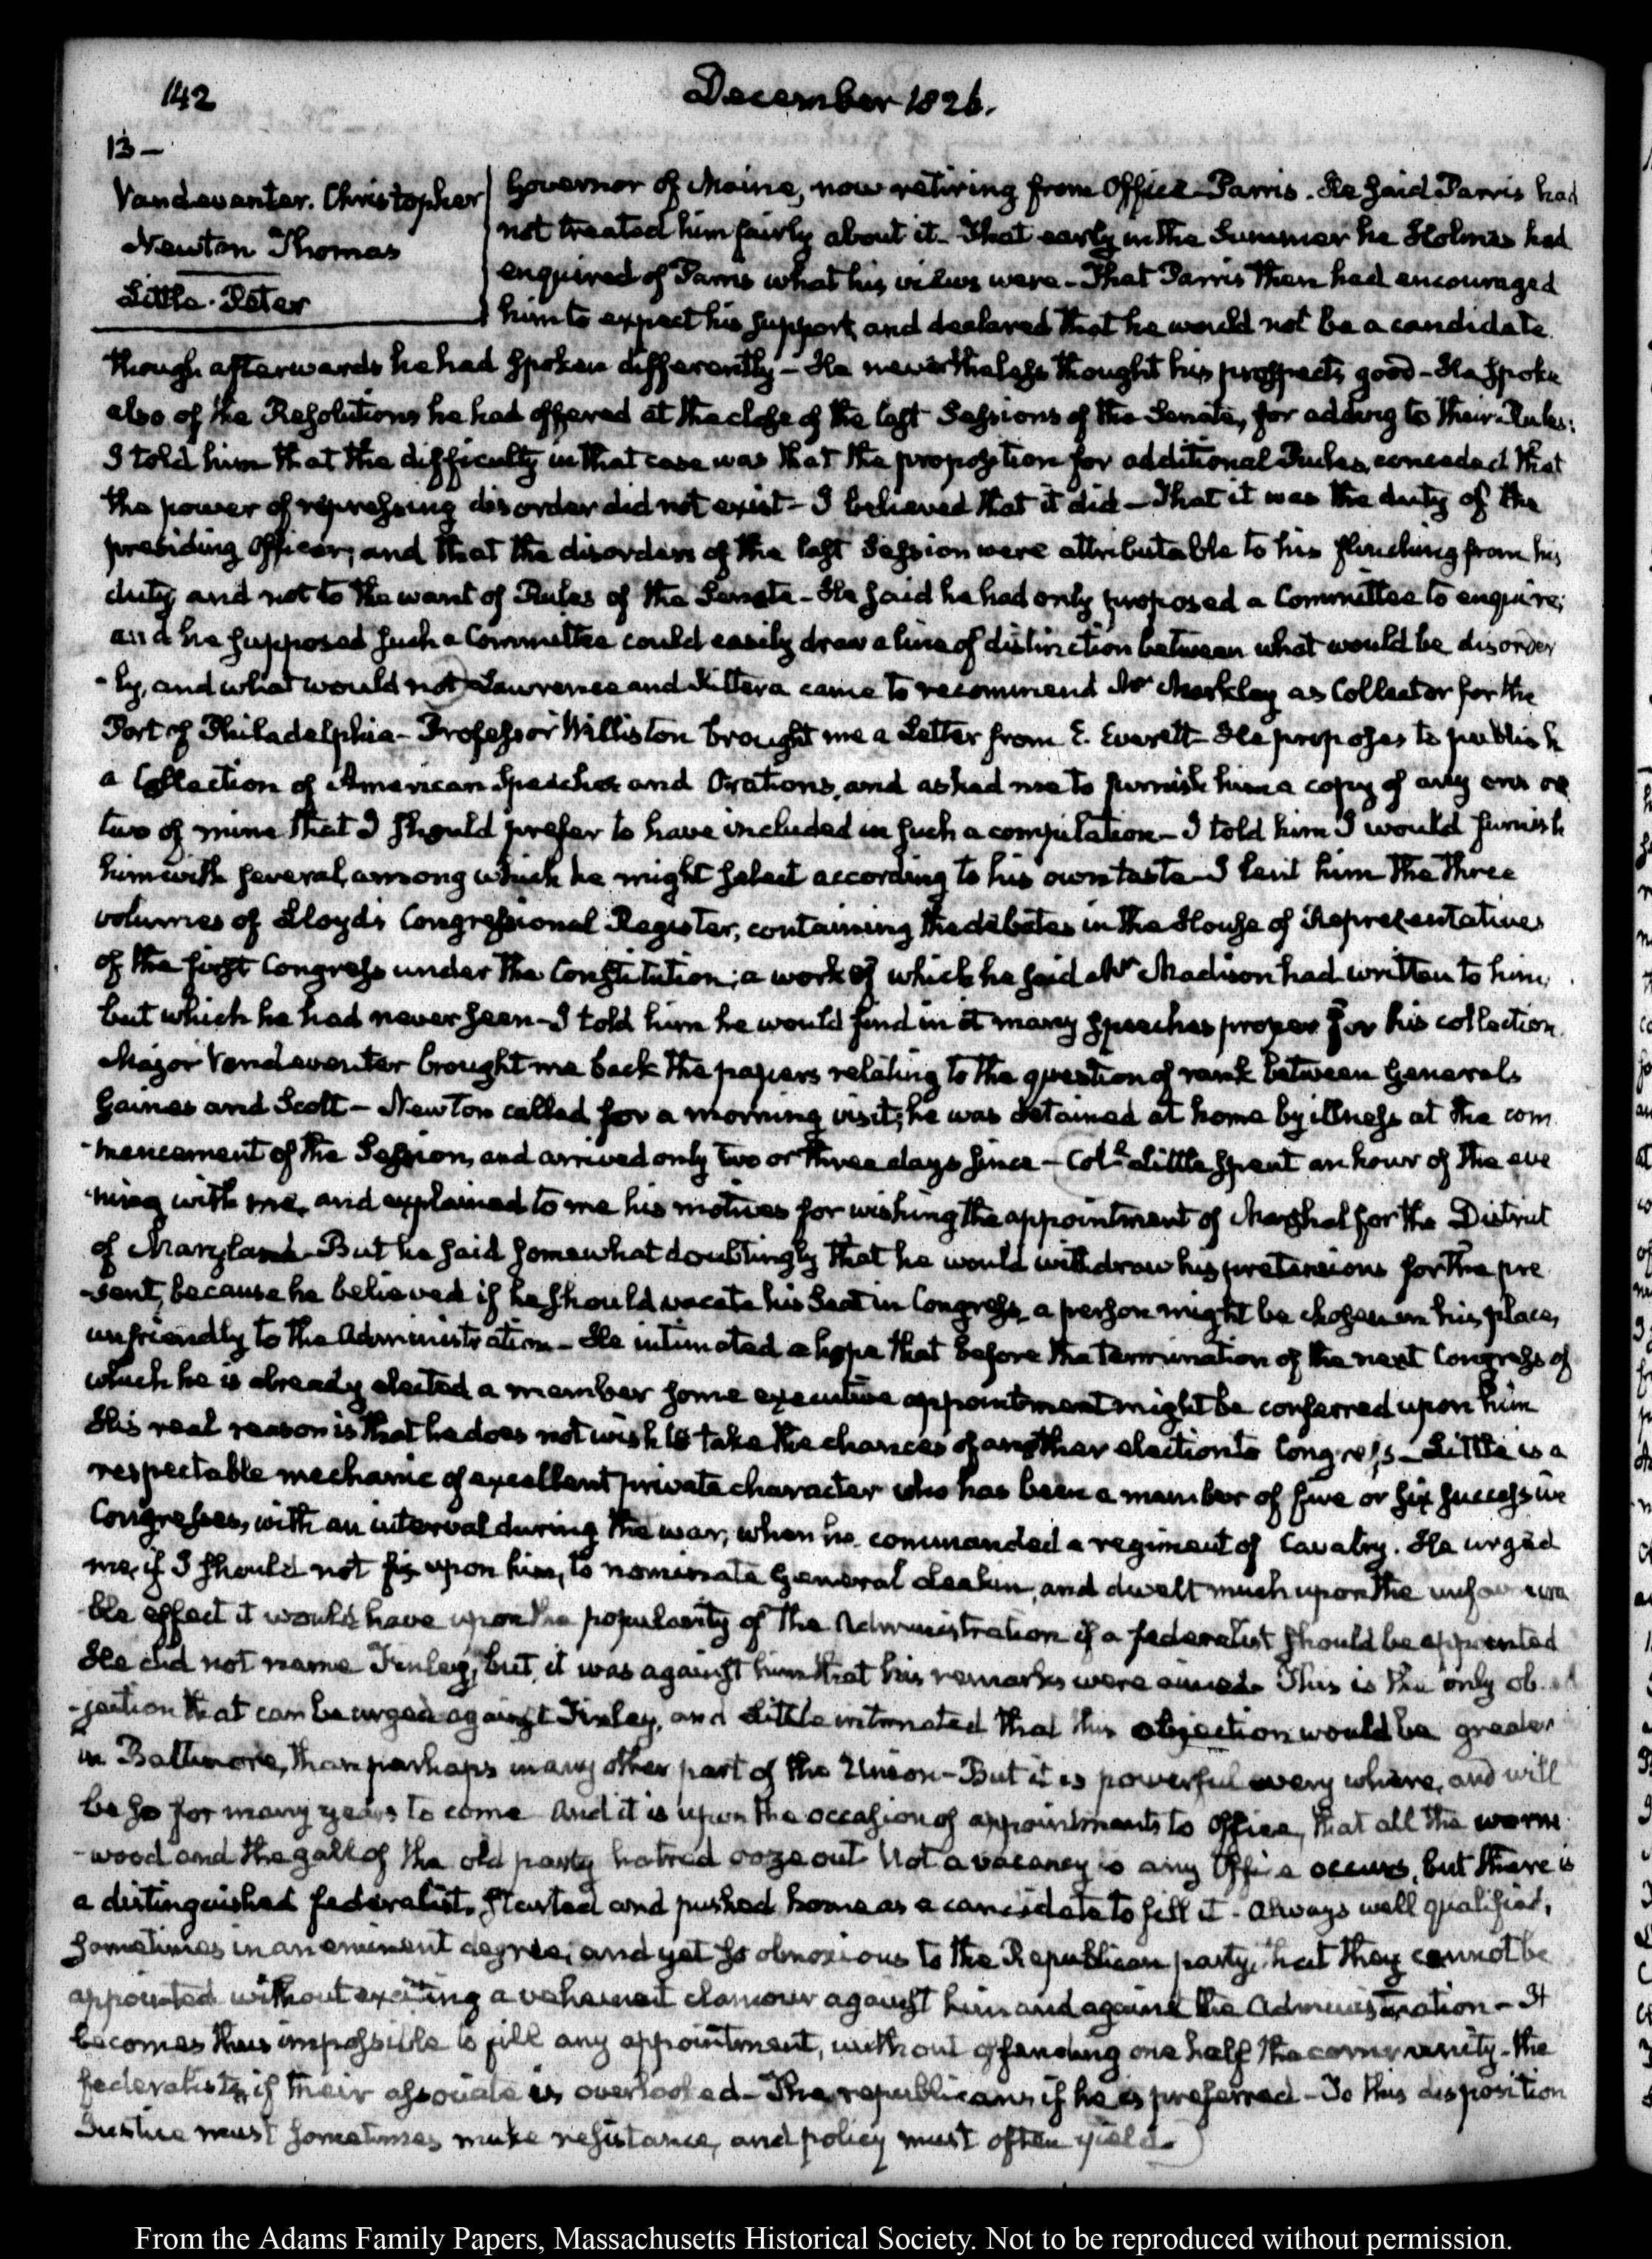 142
December 1826.
13 –
Vandeventer. Christopher
Newton Thomas
Little. Peter
Governor of Maine, now retiring from Office Parris. He said Parris had
not treated him fairly about it. That early in the Summer he Holmes had
enquired of Parris what his views were – That Parris then had encouraged
him to expect his support, and declared that he would not be a candidate.
though afterwards he had spoken differently – He nevertheless thought his prospects good – He spoke
also of the Resolutions he had offered at the close of the last Sessions of the Senate, for adding to their Rules:
I told him that the difficulty in that case was that the proposition for additional Rules, conceded that
the power of repressing disorder did not exist – I believed that it did – That it was the duty of the
presiding Officer; and that the disorders of the last Session were attributable to his flinching from his
duty and not to the want of Rules of the Senate – He said he had only proposed a Committee to enquire;
and he supposed such a Committee could easily draw a line of distinction between what would be disorder
-ly, and what would not) Lawrence and Kittera came to recommend Mr Markley as Collector for the
Port of Philadelphia – Professor Williston brought me a Letter from E. Everett – He proposes to publish
a Collection of American Speeches and Orations, and asked me to furnish him a copy of any one or
two of mine that I should prefer to have included in such a compilation – I told him I would furnish
him with several, among which he might select according to his own taste – I lent him the three
volumes of Lloyd's Congressional Register, containing the debates in the House of Representatives
of the first Congress under the Constitution; a work of which he said Mr Madison had written to him;
but which he had never seen – I told him he would find in it many speeches proper for his collection.
Major Vandeventer brought me back the papers relating to the question of rank between Generals
Gaines and Scott – Newton called for a morning visit; he was detained at home by illness at the com
-mencement of the Session, and arrived only two or three days since – Coll. Little spent an hour of the eve
-ning with me, and explained to me his motives for wishing the appointment of Marshal for the District
of Maryland – But he said somewhat doubtingly that he would withdraw his pretensions for the pre
-sent, because he believed if he should vacate his Seat in Congress, a person might be chosen in his place,
unfriendly to the Administration – He intimated a hope that before the termination of the next Congress of
which he is already elected a member some executive appointment might be conferred upon him
His real reason is that he does not wish to take the chances of another election to Congress – Little is a
respectable mechanic of excellent private character who has been a member of five or six successive
Congresses, with an interval during the war, when he commanded a regiment of Cavalry. He urged
me, if I should not fix upon him, to nominate General Leakin, and dwelt much upon the unfavoura
-ble effect it would have upon the popularity of the Administration if a federalist should be appointed
He did not name Finley, but, it was against him that his remarks were aimed. This is the only ob
-jection that can be urged against Finley, and Little intimated that this objection would be greater
in Baltimore, than perhaps in any other part of the Union – But it is powerful every where, and will
be so for many years to come – And it is upon the occasion of appointments to office, that all the worm
-wood and the gall of the old party hatred ooze out. Not a vacancy to any Office occurs, but there is
a distinguished federalist, started and pushed home as a candidate to fill it – always well qualified,
sometimes in an eminent degree; and yet so obnoxious to the Republican party, that they cannot be
appointed without exciting a vehement clamour against him and against the Administration – It
becomes thus impossible to fill any appointment, without offending one half the community – the
federalists, if their associate is overlooked – The republicans if he is preferred – To this disposition
Justice must sometimes make resistance, and policy must often yield.)
From the Adams Family Papers, Massachusetts Historical Society. Not to be reproduced without permission.